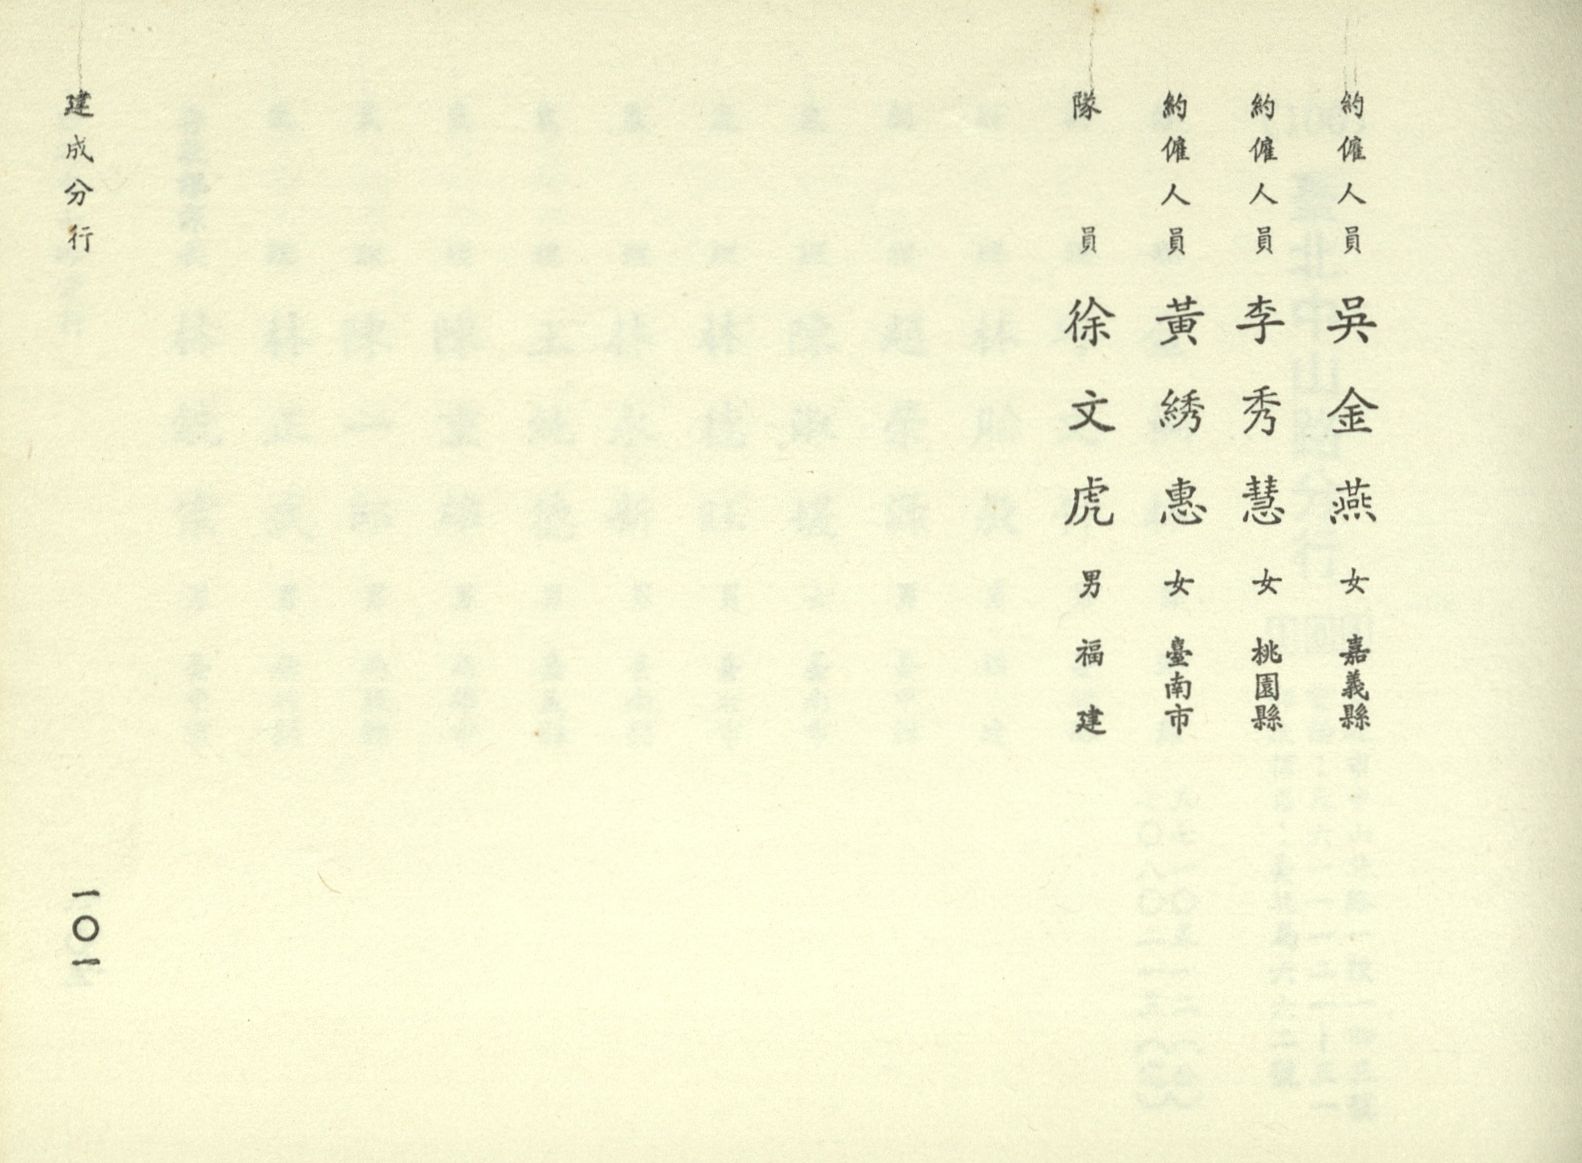 約僱人員 吳金燕 女 嘉義縣
約僱人員 李秀慧 女 桃園縣
約僱人員 黃綉惠 女 臺南市
隊員 徐文虎 男 福建
建成分行
一〇一